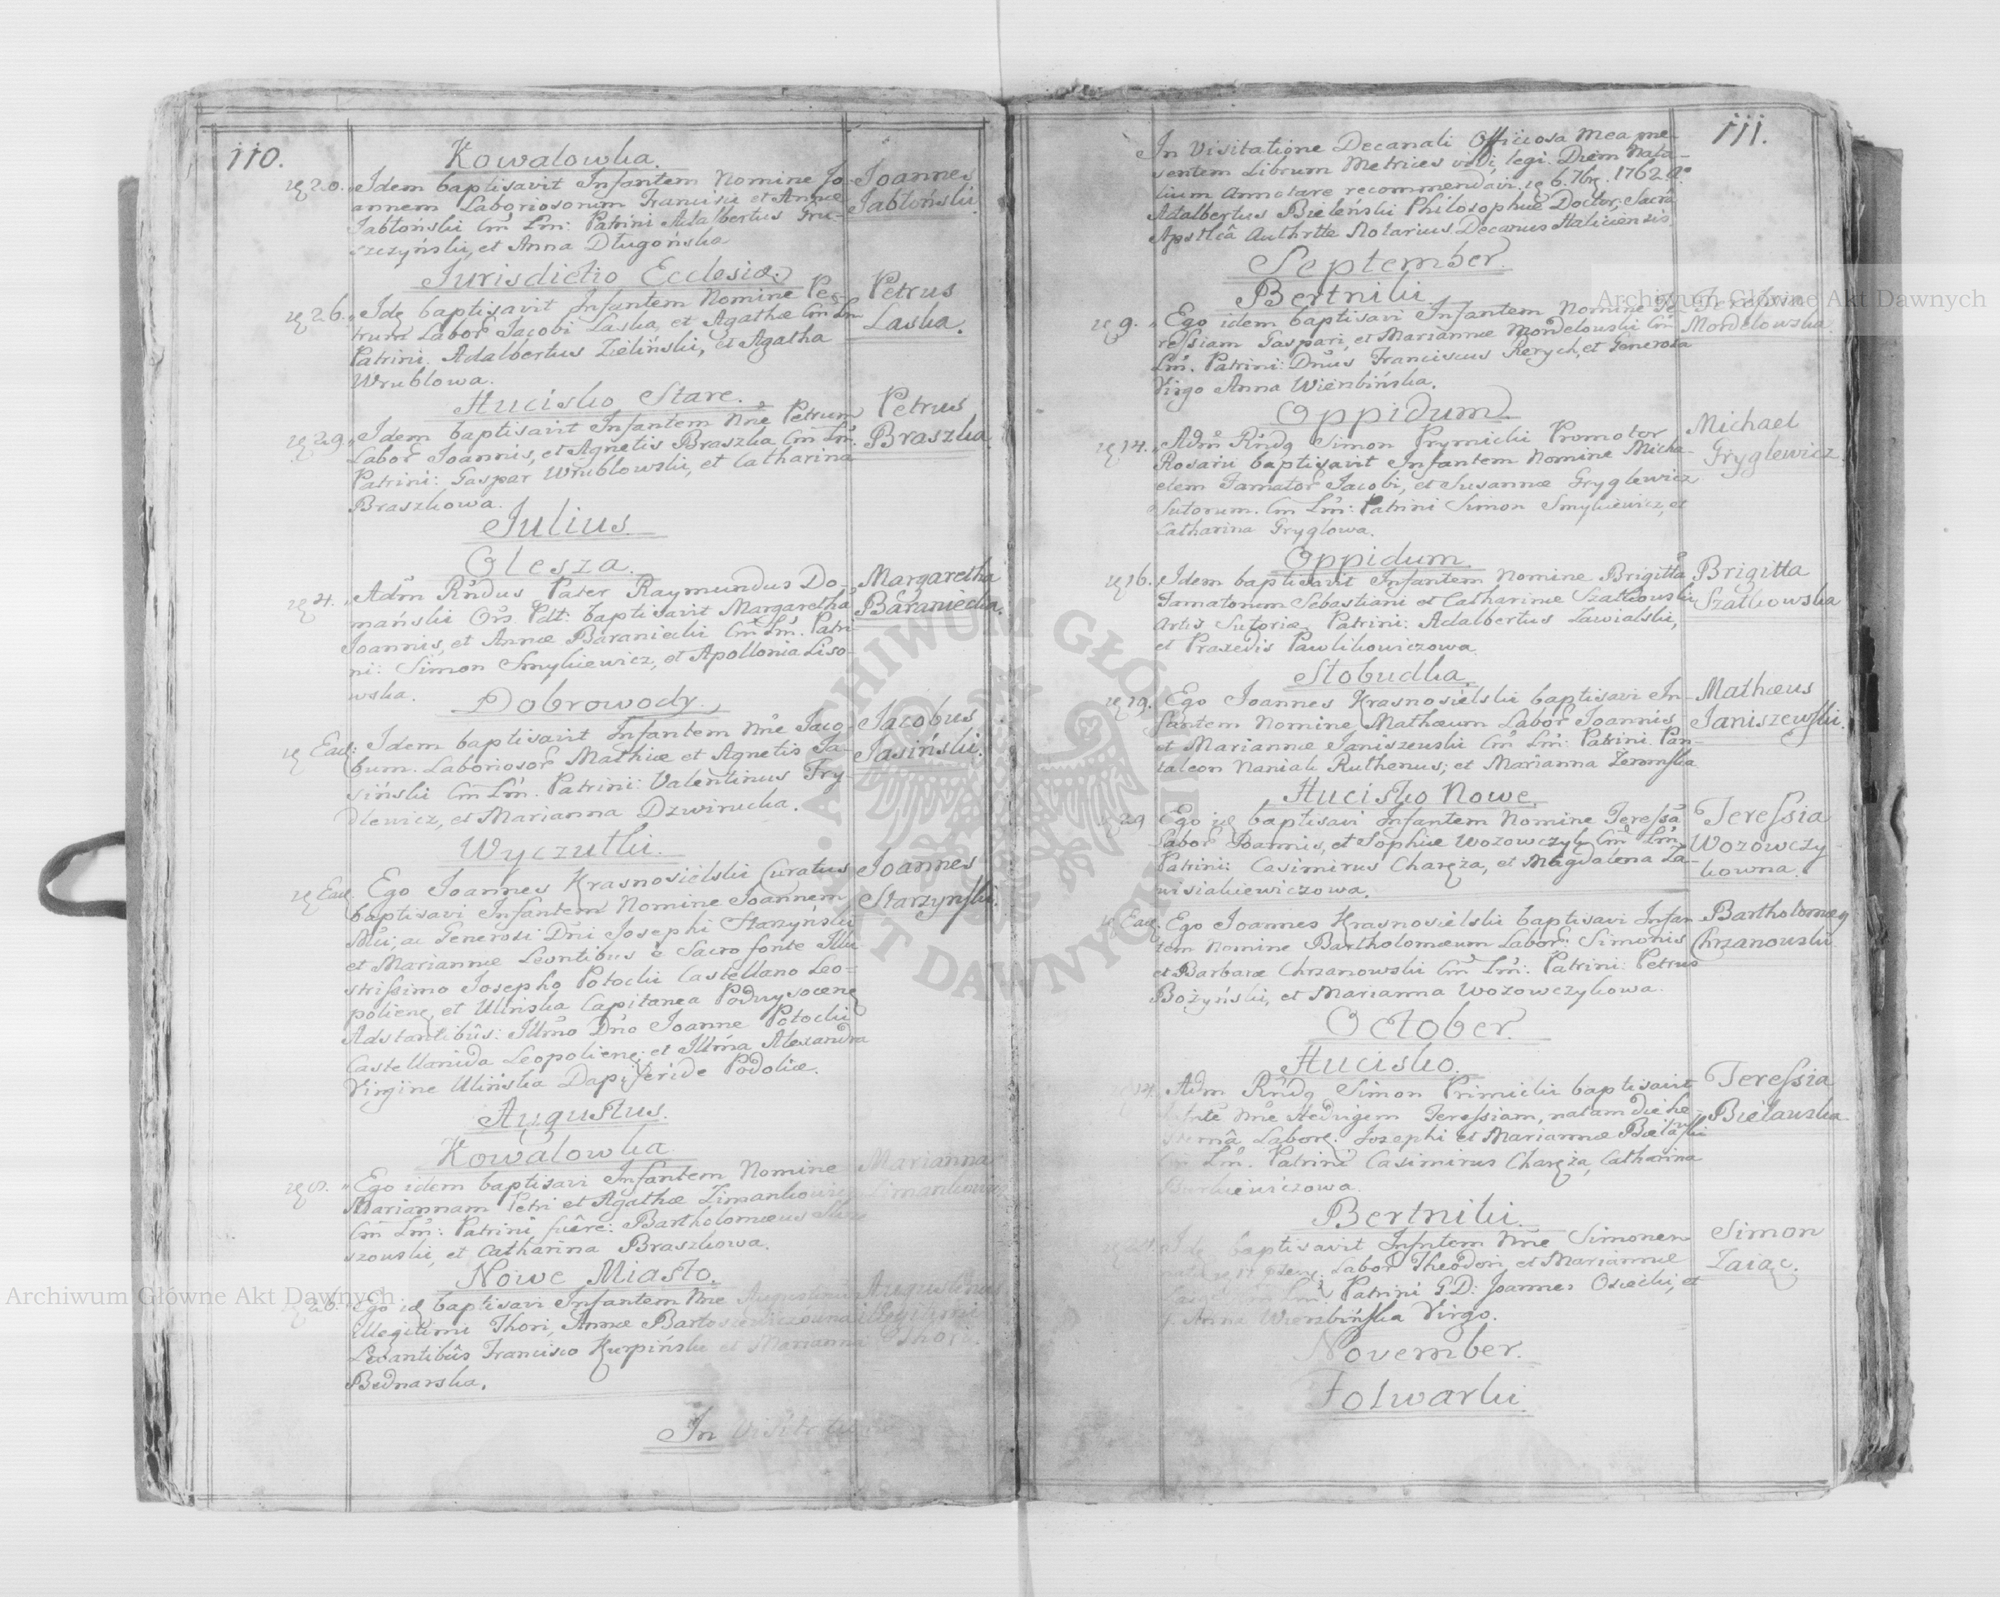 110.
Kowalowka.
20. Idem baptisavit Infantem Nomine Jo-
annem Laboriosorum Francisci et Annæ
Jabłoński Cm̃ Lm̃: Patrini Adalbertus Gru-
szczyński, et Anna Długońska
Joannes
Jabłoński.
Jurisdictio Ecclesiæ.
26. Idẽ baptisavit Infantem Nomine Pe-
trum Labor Jacobi Laska, et Agathæ Cm̃ Lm̃
Patrini Adalbertus Zieliński, et Agatha
Wrublowa.
Petrus
Laska.
Hucisko Stare.
29. Idem baptisavit Infantem Nñe Petrum
Labor Joannis, et Agnetis Braszka Cm̃ Lm̃.
Patrini: Gaspar Wrublowski, et Catharina
Braszkowa.
Petrus
Braszka
Julius.
Olesza.
4. Adm̃ Rñdus Pater Raymundus Do-
mański Ors. Pdt: baptisavit Margarethã
Joannis, et Annæ Baraniecki Cm̃ Lm̃. Patri-
ni: Simon Smykiewicz, et Apollonia Liso-
wska.
Margaretha
Baraniecka.
Dobrowody.
Ead: Idem baptisavit Infantem Nñe Jaco-
bum. Laboriosor Mathiæ et Agnetis Ja-
siński Cm̃ Lm̃. Patrini: Valentinus Fry-
dlewicz, et Marianna Dzwirucka.
Jacobus
Jasiński.
Wyczułki.
Ead. Ego Joannes Krasnosielski Curatus
baptisavi Infantem Nomine Joannem
Mci; ac Generosi Dñi Josephi Starzyński
et Mariannæ Levntibus è Sacro fonte Illu
strissimo Josepho Potocki Castellano Leo-
poliene, et Ulińska Capitanea Podwysocenẽ
Adstantibûs: Illm̃o Dño Joanne Potocki
Castellanida Leopoliene; et Illm̃a Alexandra
Virgine Ulińska Dapiferide Podoliæ.
Joannes
Starzyński.
Augustus.
Kowalowka
Ego idem baptisavi Infantem Nomine
Mariannam Petri et Agathæ Zimankowie
Cm̃ Lm̃: Patrini fuêre: Bartholomæus
szowski, et Catharina Braszkowa.
Marianna
Nowe Miasto.
26. Ego idẽ baptisavi Infantem Nñe Augustinũ
Illegitimi Thori, Annæ
Levantibûs Francisco Kurpiński et Marianna
Bednarska.
Augustinus
Illegitimi
Thori.
In Visitatione
111.
In Visitatione Decanali Officiosa Mea præ-
sentem Librum Metrices vidi, legi. Diem Nata-
lium Annotare recommendavi. 6. 7br. 1762 Aº
Adalbertus Bieleński Philosophiæ Doctor, Sacrâ
Apstlcâ Authrtte Notarius, Decanus Haliciensis.
September.
Bertniki.
9. Ego idem baptisavi Infantem Nomine Te-
ressiam Gaspari, et Mariannæ Mondelowski Cm̃
Lm̃. Patrini: Dñus Franciscus Rerych, et Generosa
Virgo Anna Wierzbińska.
Teressia
Mondelowska
Oppidum.
14. Adm̃ Rñdg Simon Prymicki Promotor
Rosarii baptisavit Infantem Nomine Micha-
elem Famator Jacobi, et Susannæ Gryglewicz
Sutorum. Cm̃ Lm̃: Patrini Simon Smykiewicz, et
Catharina Gryglowa.
Michael
Gryglewicz
Oppidum.
16. Idem baptisavit Infantem Nomine Brigittã
Famatorum Sebastiani et Catharinæ Szatkowski
Artis Sutoriæ Patrini: Adalbertus Zawialski,
et Praxedis Pawlikowiczowa.
Brigitta
Szatkowska
Słobudka.
19. Ego Joannes Krasnosielski baptisavi In-
fantem Nomine Mathæum Labor Joannis
et Mariannæ Janiszewski Cm̃ Lm̃: Patrini Pan-
taleon Naniak Ruthenus; et Marianna Zeromska
Mathæus
Janiszewski.
Hucisko Nowe.
29 Ego idẽ baptisavi Infantem Nomine Teressã
Labor Joannis, et Sophiæ Wozowczyk Cm̃ Lm̃.
Patrini: Casimirus Charęza, et Magdalena Za-
wisiakiewiczowa.
Teressia
Wozowczy-
kowna.
Ead. Ego Joannes Krasnosielski baptisavi Infan
tem Nomine Bartholomæum Labor: Simonis
et Barbaræ Chrzanowski Cm̃ Lm̃: Patrini: Petrus
Bożyński, et Marianna Wozowczykowa.
Bartholomæy
Chrzanowski
October.
Hucisko.
Adm Rñdg Simon Primicki baptisavit
Infte Nñe Hedvigem Teressiam, natam die he-
sternâ Labore. Josephi et Mariannæ Bielawski
Cm̃ Lm̃. Patrini Casimirus Charęża, Catharina
Burkiewiczowa.
Teressia
Bielawska.
Bertniki.
Idẽ baptisavit Infntem Nñe Simonem
Labor Theodori, et Mariannæ
Zaiąc Cm̃ Lm̃. Patrini G.D: Joannes Osiecki, et
G. Anna Wierzbińska Virgo.
Simon
Zaiąc.
November.
Folwarki.
Archiwum Główne Akt Dawnych
Archiwum Główne Akt Dawnych
ARCHIWUM GŁÓWNE AKT DAWNYCH